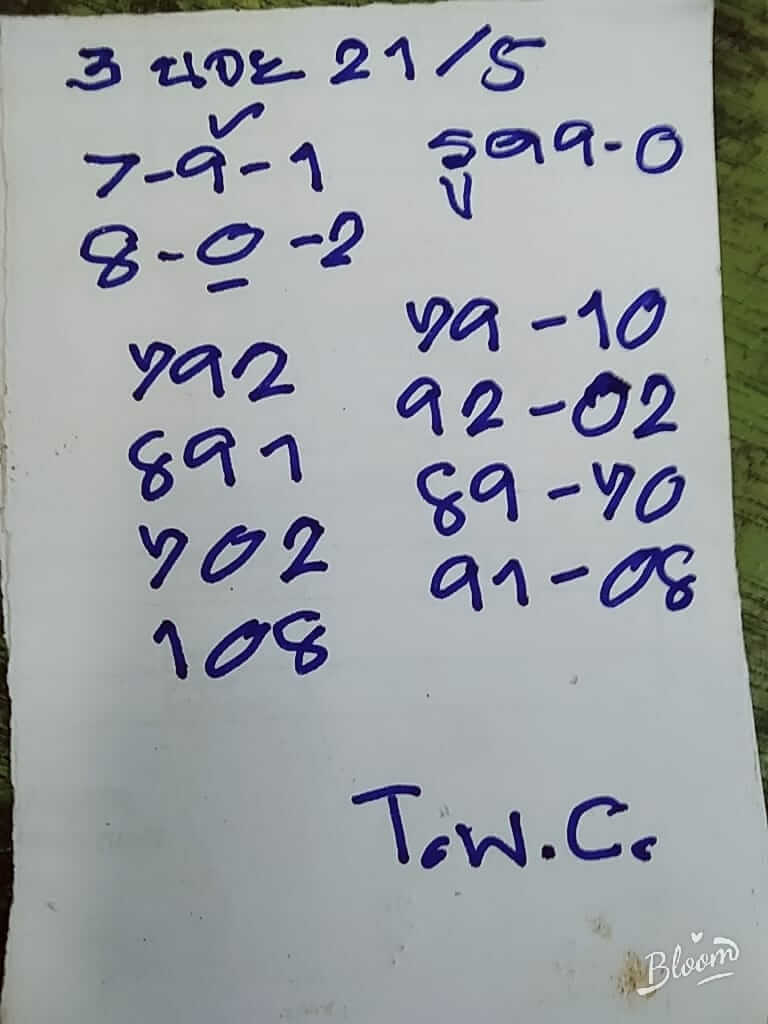 3 นอย 21/5
7-9-1 รูด 9-0
8-0-2
792 79-10
891 92-02
702 89-70
108 91-08
T.W.C.
Bloom